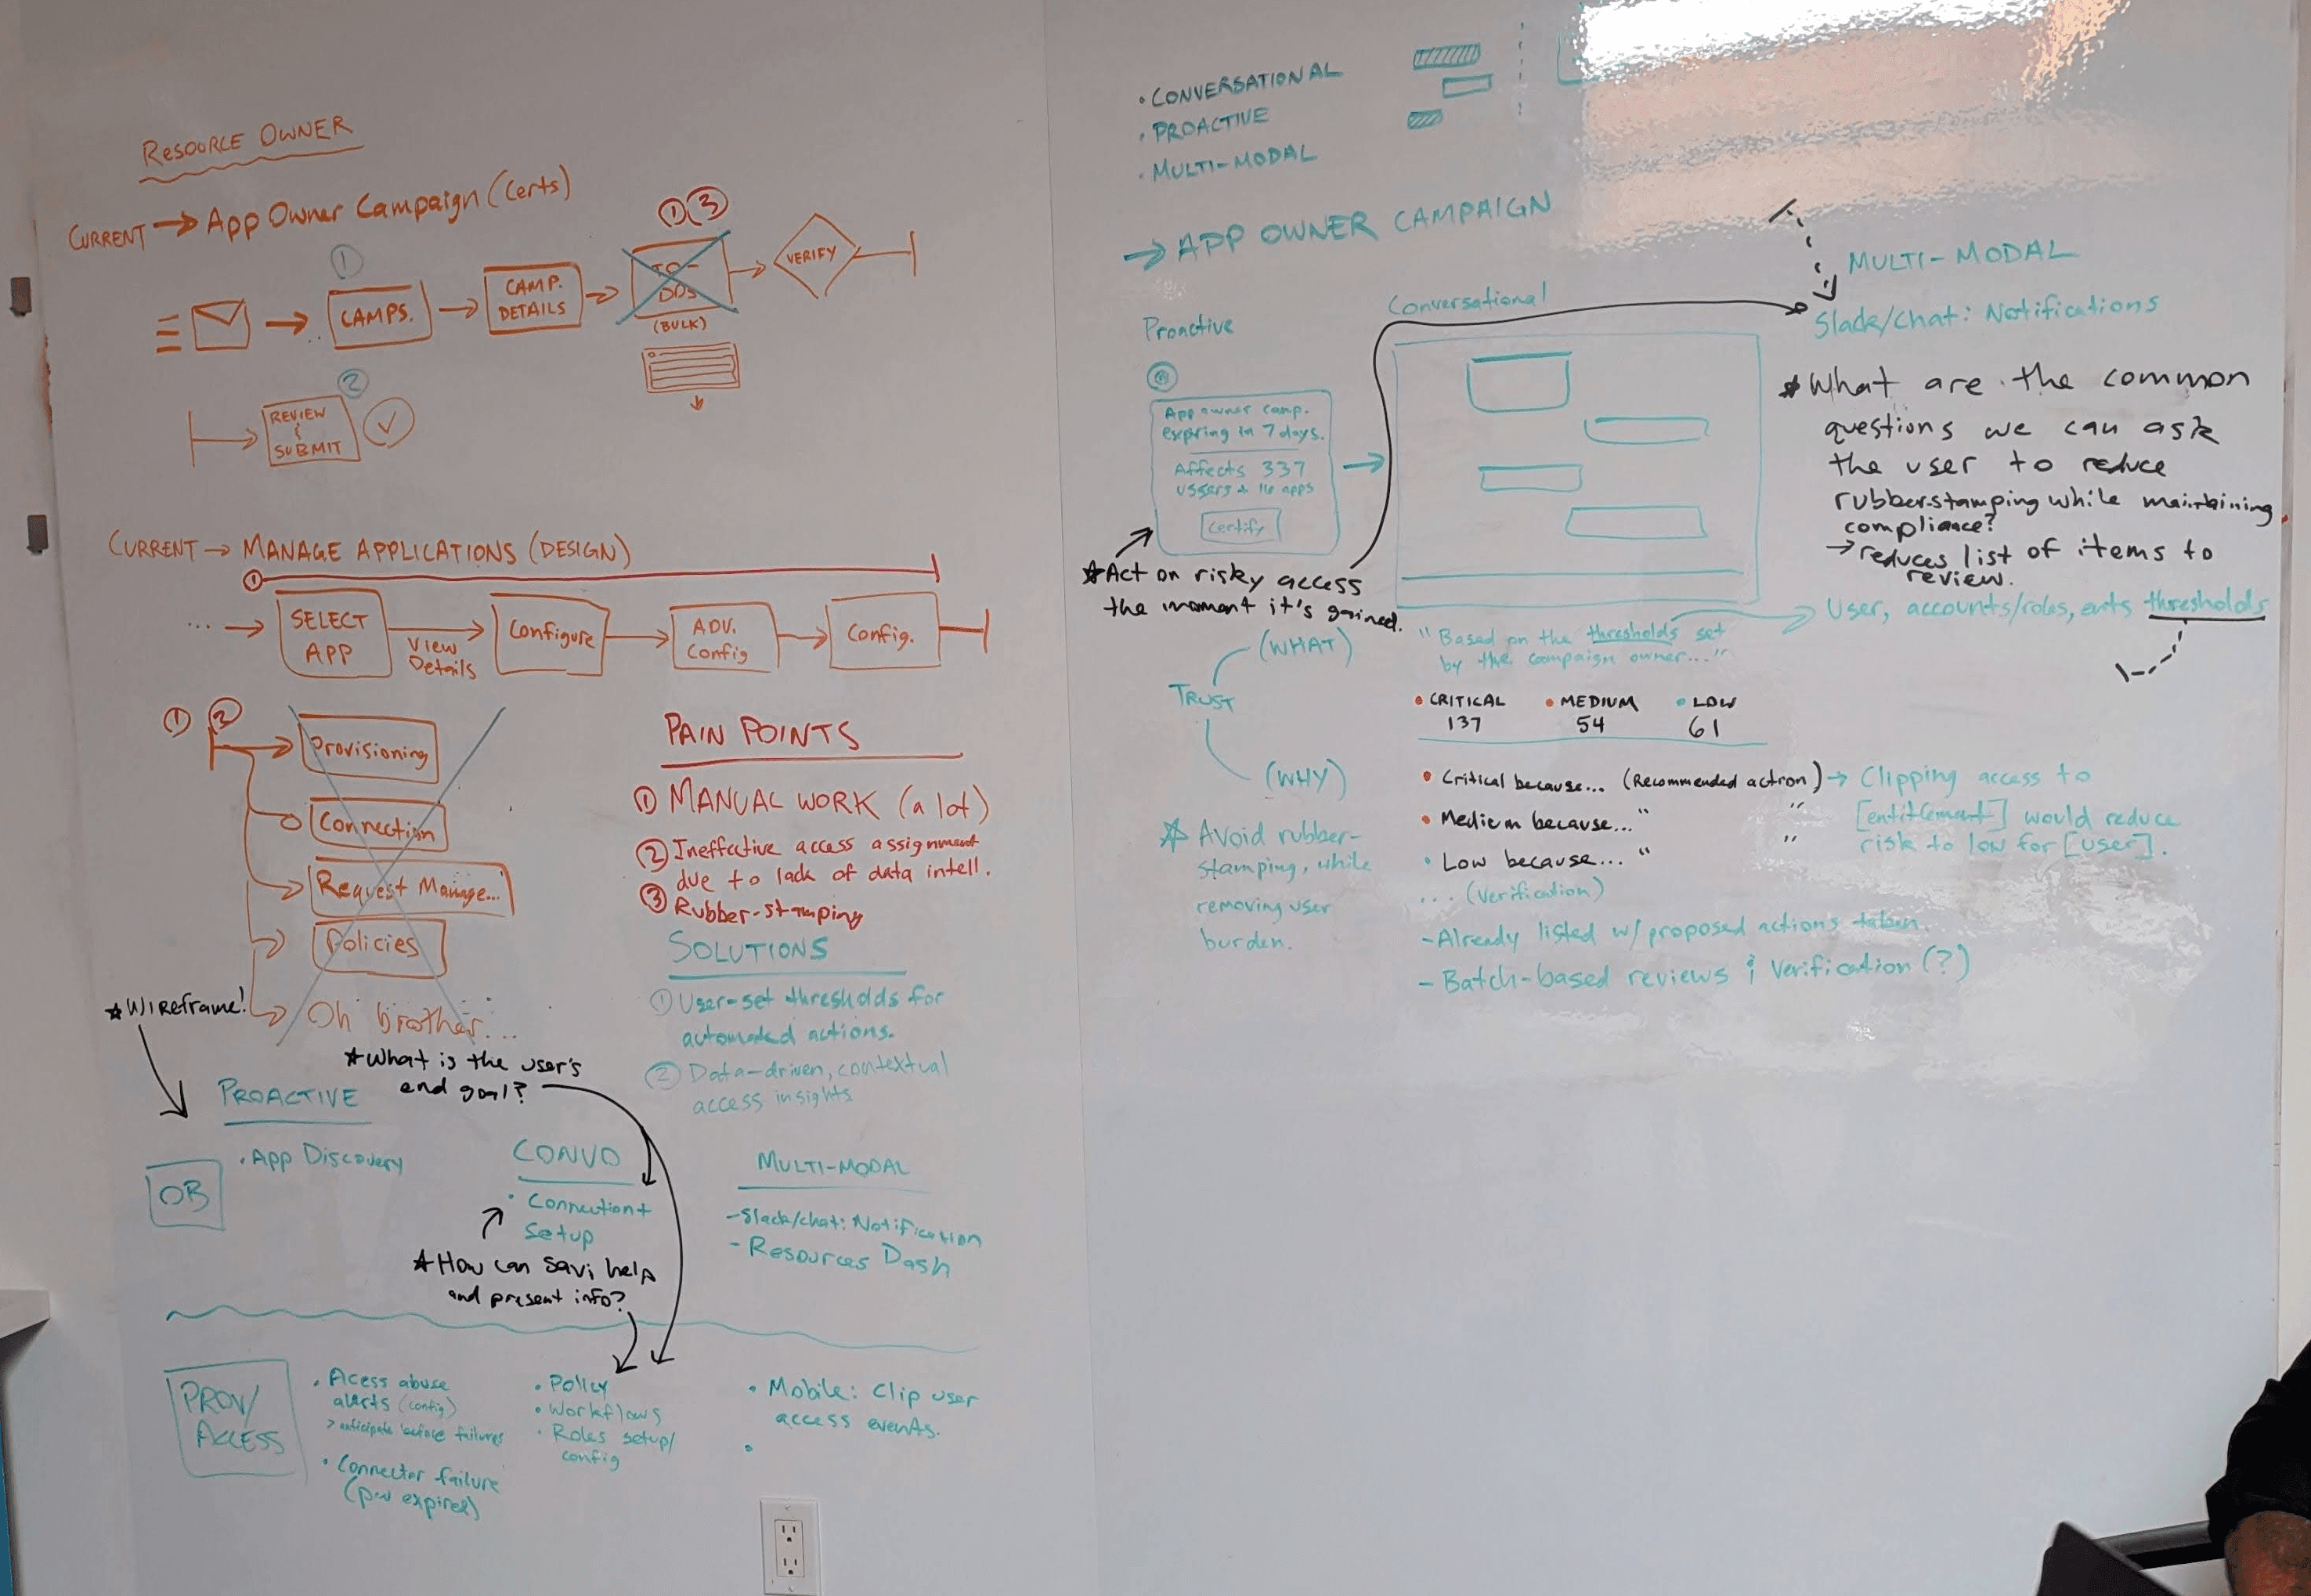 RESOURCE OWNER
CURRENT → App Owner Campaign (Certs)
① ③
①
CAMPS.
CAMP.
DETAILS
TO-
DOS
(BULK)
VERIFY
②
REVIEW
&
SUBMIT
CURRENT → MANAGE APPLICATIONS (DESIGN)
①
... → SELECT
APP
View
Details
Configure
ADV.
Config
Config.
① ②
Provisioning
Connection
Request Manage...
Policies
Oh brother...
PAIN POINTS
① MANUAL WORK (a lot)
② Ineffective access assignment
due to lack of data intell.
③ Rubber-stamping
SOLUTIONS
① User-set thresholds for
automated actions.
② Data-driven, contextual
access insights
★ WIREframe!
★ What is the user's
end goal?
PROACTIVE
OB
• App Discovery
CONVO
• Connection +
Setup
★ How can Savi help
and present info?
MULTI-MODAL
- Slack/chat: Notification
- Resources Dash
PROV/
ACCESS
• Acess abuse
alerts (config)
> anticipate before failures
• Connector failure
(pw expired)
• Policy
• Workflows
• Roles setup/
config
• Mobile: Clip user
access events.
•
• CONVERSATIONAL
• PROACTIVE
• MULTI-MODAL
→ APP OWNER CAMPAIGN
Proactive
App owner camp.
expiring in 7 days.
Affects 337
ussers + 16 apps
Certify
★ Act on risky access
the moment it's gained.
Conversational
MULTI-MODAL
Slack/chat: Notifications
★ What are the common
questions we can ask
the user to reduce
rubberstamping while maintaining
compliance?
→ reduces list of items to
review.
User, accounts/roles, ents thresholds
TRUST
(WHAT)
"Based on the thresholds set
by the campaign owner..."
• CRITICAL • MEDIUM • LOW
137 54 61
(WHY)
• Critical because... (Recommended action) → Clipping access to
[entitlement] would reduce
risk to low for [user].
• Medium because... " "
• Low because... " "
... (Verification)
- Already listed w/ proposed actions taken.
- Batch-based reviews & Verification (?)
★ Avoid rubber-
stamping, while
removing user
burden.